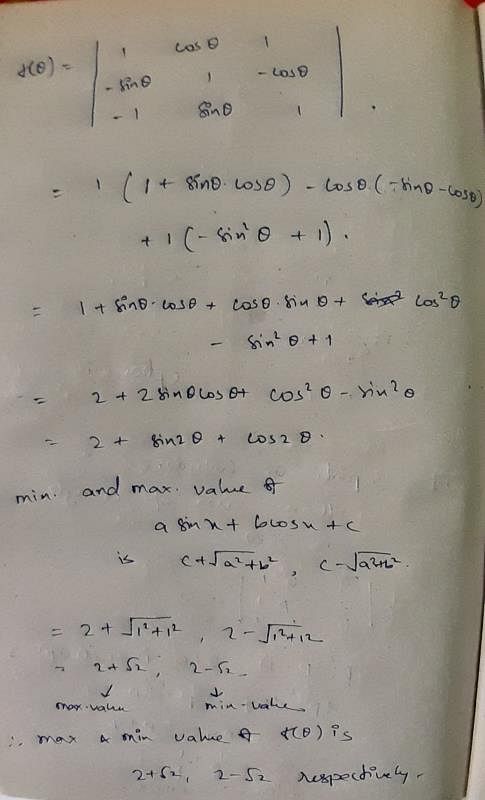 f(θ) = | 1 cosθ 1 |
| -sinθ 1 -cosθ |
| -1 sinθ 1 | .
= 1 ( 1 + sinθ·cosθ ) - cosθ·(-sinθ - cosθ)
+ 1 ( - sin²θ + 1 ) .
= 1 + sinθ·cosθ + cosθ·sinθ + cos²θ
- sin²θ + 1
= 2 + 2 sinθ cosθ + cos²θ - sin²θ
= 2 + sin2θ + cos2θ .
min. and max. value of
a sinx + b cosx + c
is c+√a²+b² , c-√a²+b² .
= 2 + √1²+1² , 2 - √1²+12
= 2+√2 , 2-√2
↓ ↓
max-value min-value
∴ max & min value of f(θ) is
2+√2, 2-√2 respectively.